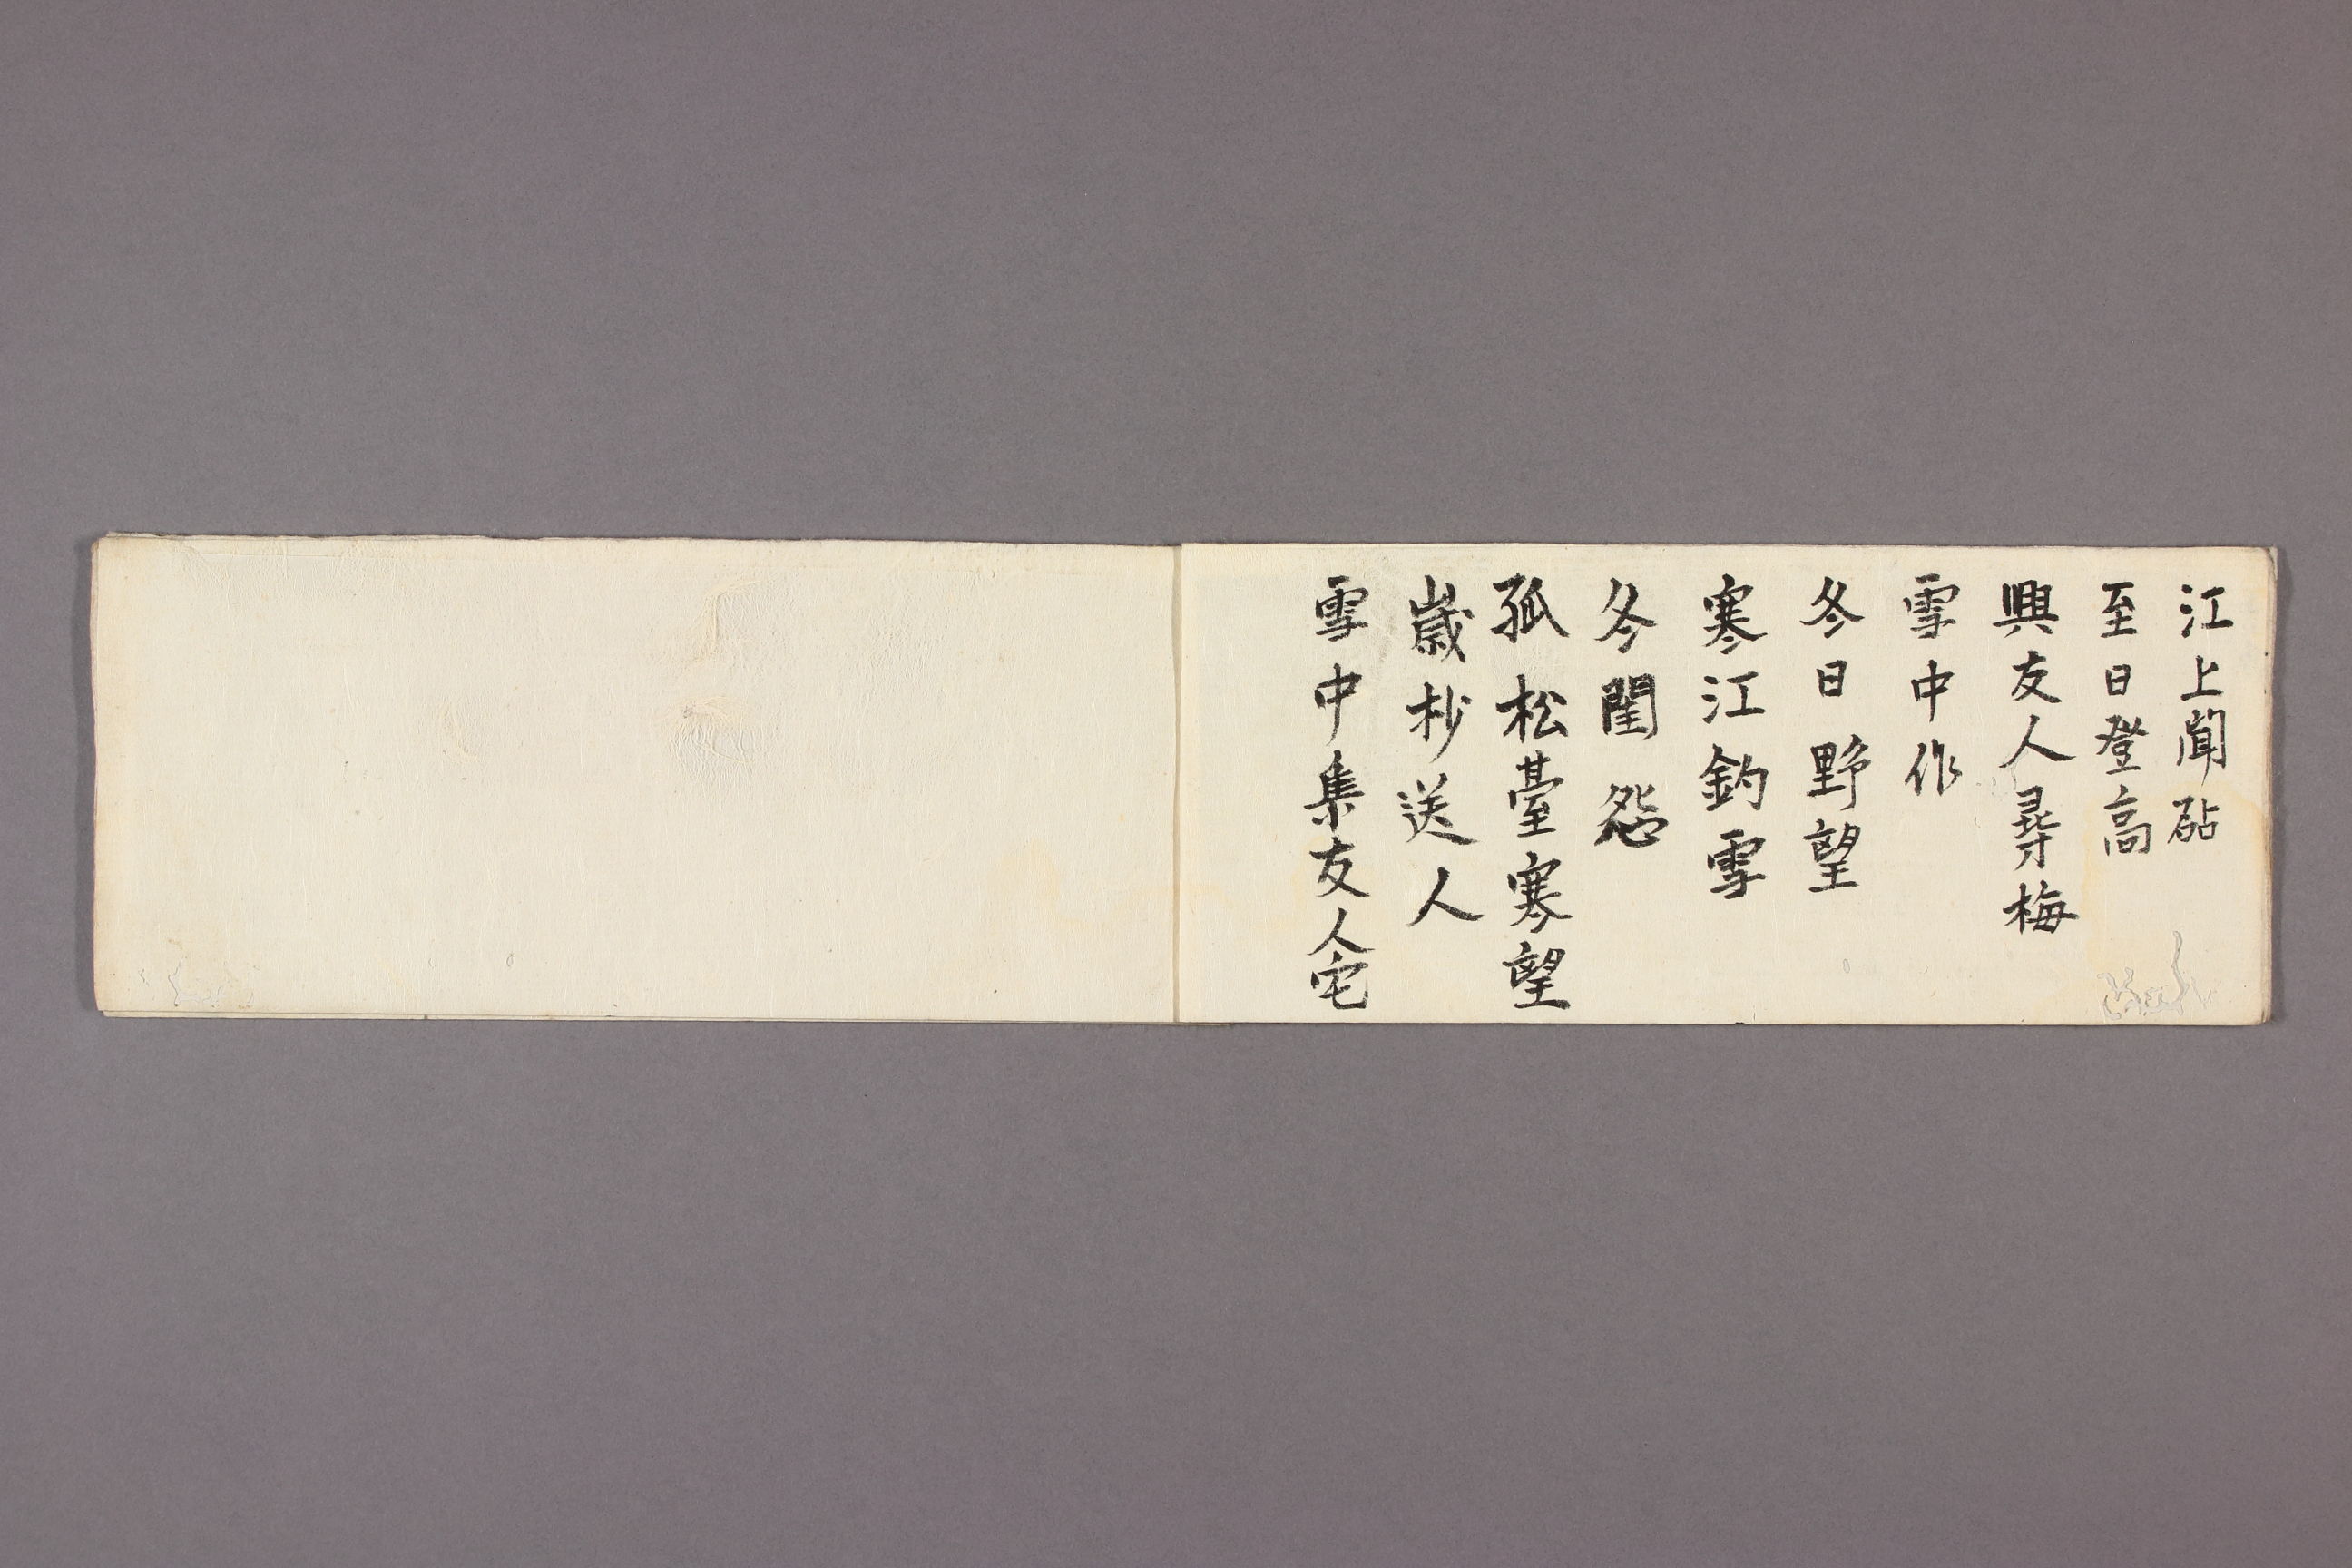 江上聞砧
至日登高
興友人尋梅
雪中作
冬日野望
寒江釣雪
冬閨怨
孤松臺寒望
歳杪送人
雪中集友人宅